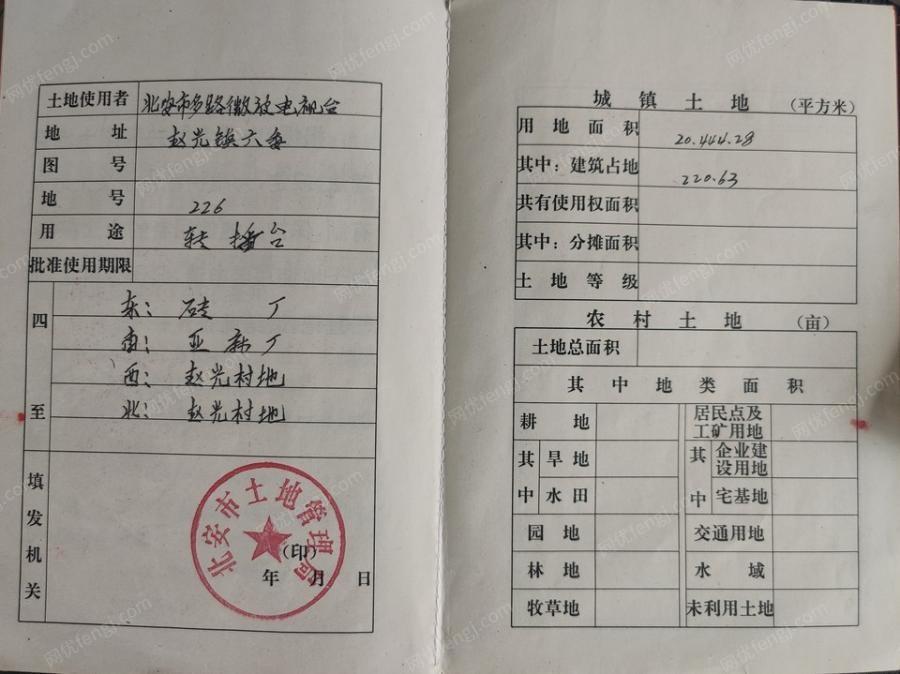 土地使用者 北安市多路微波电视台
地 址 赵光镇六委
图 号
地 号 226
用 途 转播台
批准使用期限
四至
东：砖厂
南：亚麻厂
西：赵光村地
北：赵光村地
填发机关
北安市土地管理局
（印）
年 月 日
城 镇 土 地 （平方米）
用地面积 20.444.28
其中：建筑占地 220.63
共有使用权面积
其中：分摊面积
土地等级
农 村 土 地 （亩）
土地总面积
其 中 地 类 面 积
耕 地 居民点及工矿用地
其中 旱地 其中 企业建设用地
水田 宅基地
园 地 交通用地
林 地 水 域
牧草地 未利用土地
网优fengj.com